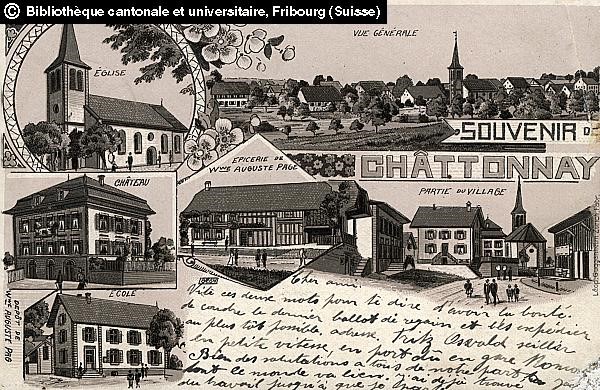 © Bibliothèque cantonale et universitaire, Fribourg (Suisse)
VUE GÉNÉRALE
ÉGLISE
SOUVENIR D
CHÂTTONNAY
EPICERIE DE
Wwe AUGUSTE PAGE
PARTIE DU VILLAGE
CHÂTEAU
ÉCOLE
DÉPÔT DE
Wwe AUGUSTE PAG
Cher ami.
Vite ces deux mots pour te dire d'avoir la bonté
de coudre le dernier ballot de regain et les expédier
au plus tôt possible, adresse, Fritz Oswald sellier
en petite vitesse, en port dû en gare Romon
Bien des salutations à tous de notre part
tout le monde va bien j'ai déjà
du travail jusqu'à que je